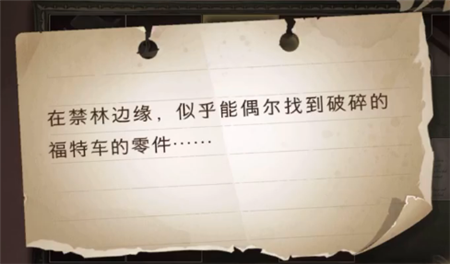 在禁林边缘，似乎能偶尔找到破碎的
福特车的零件……